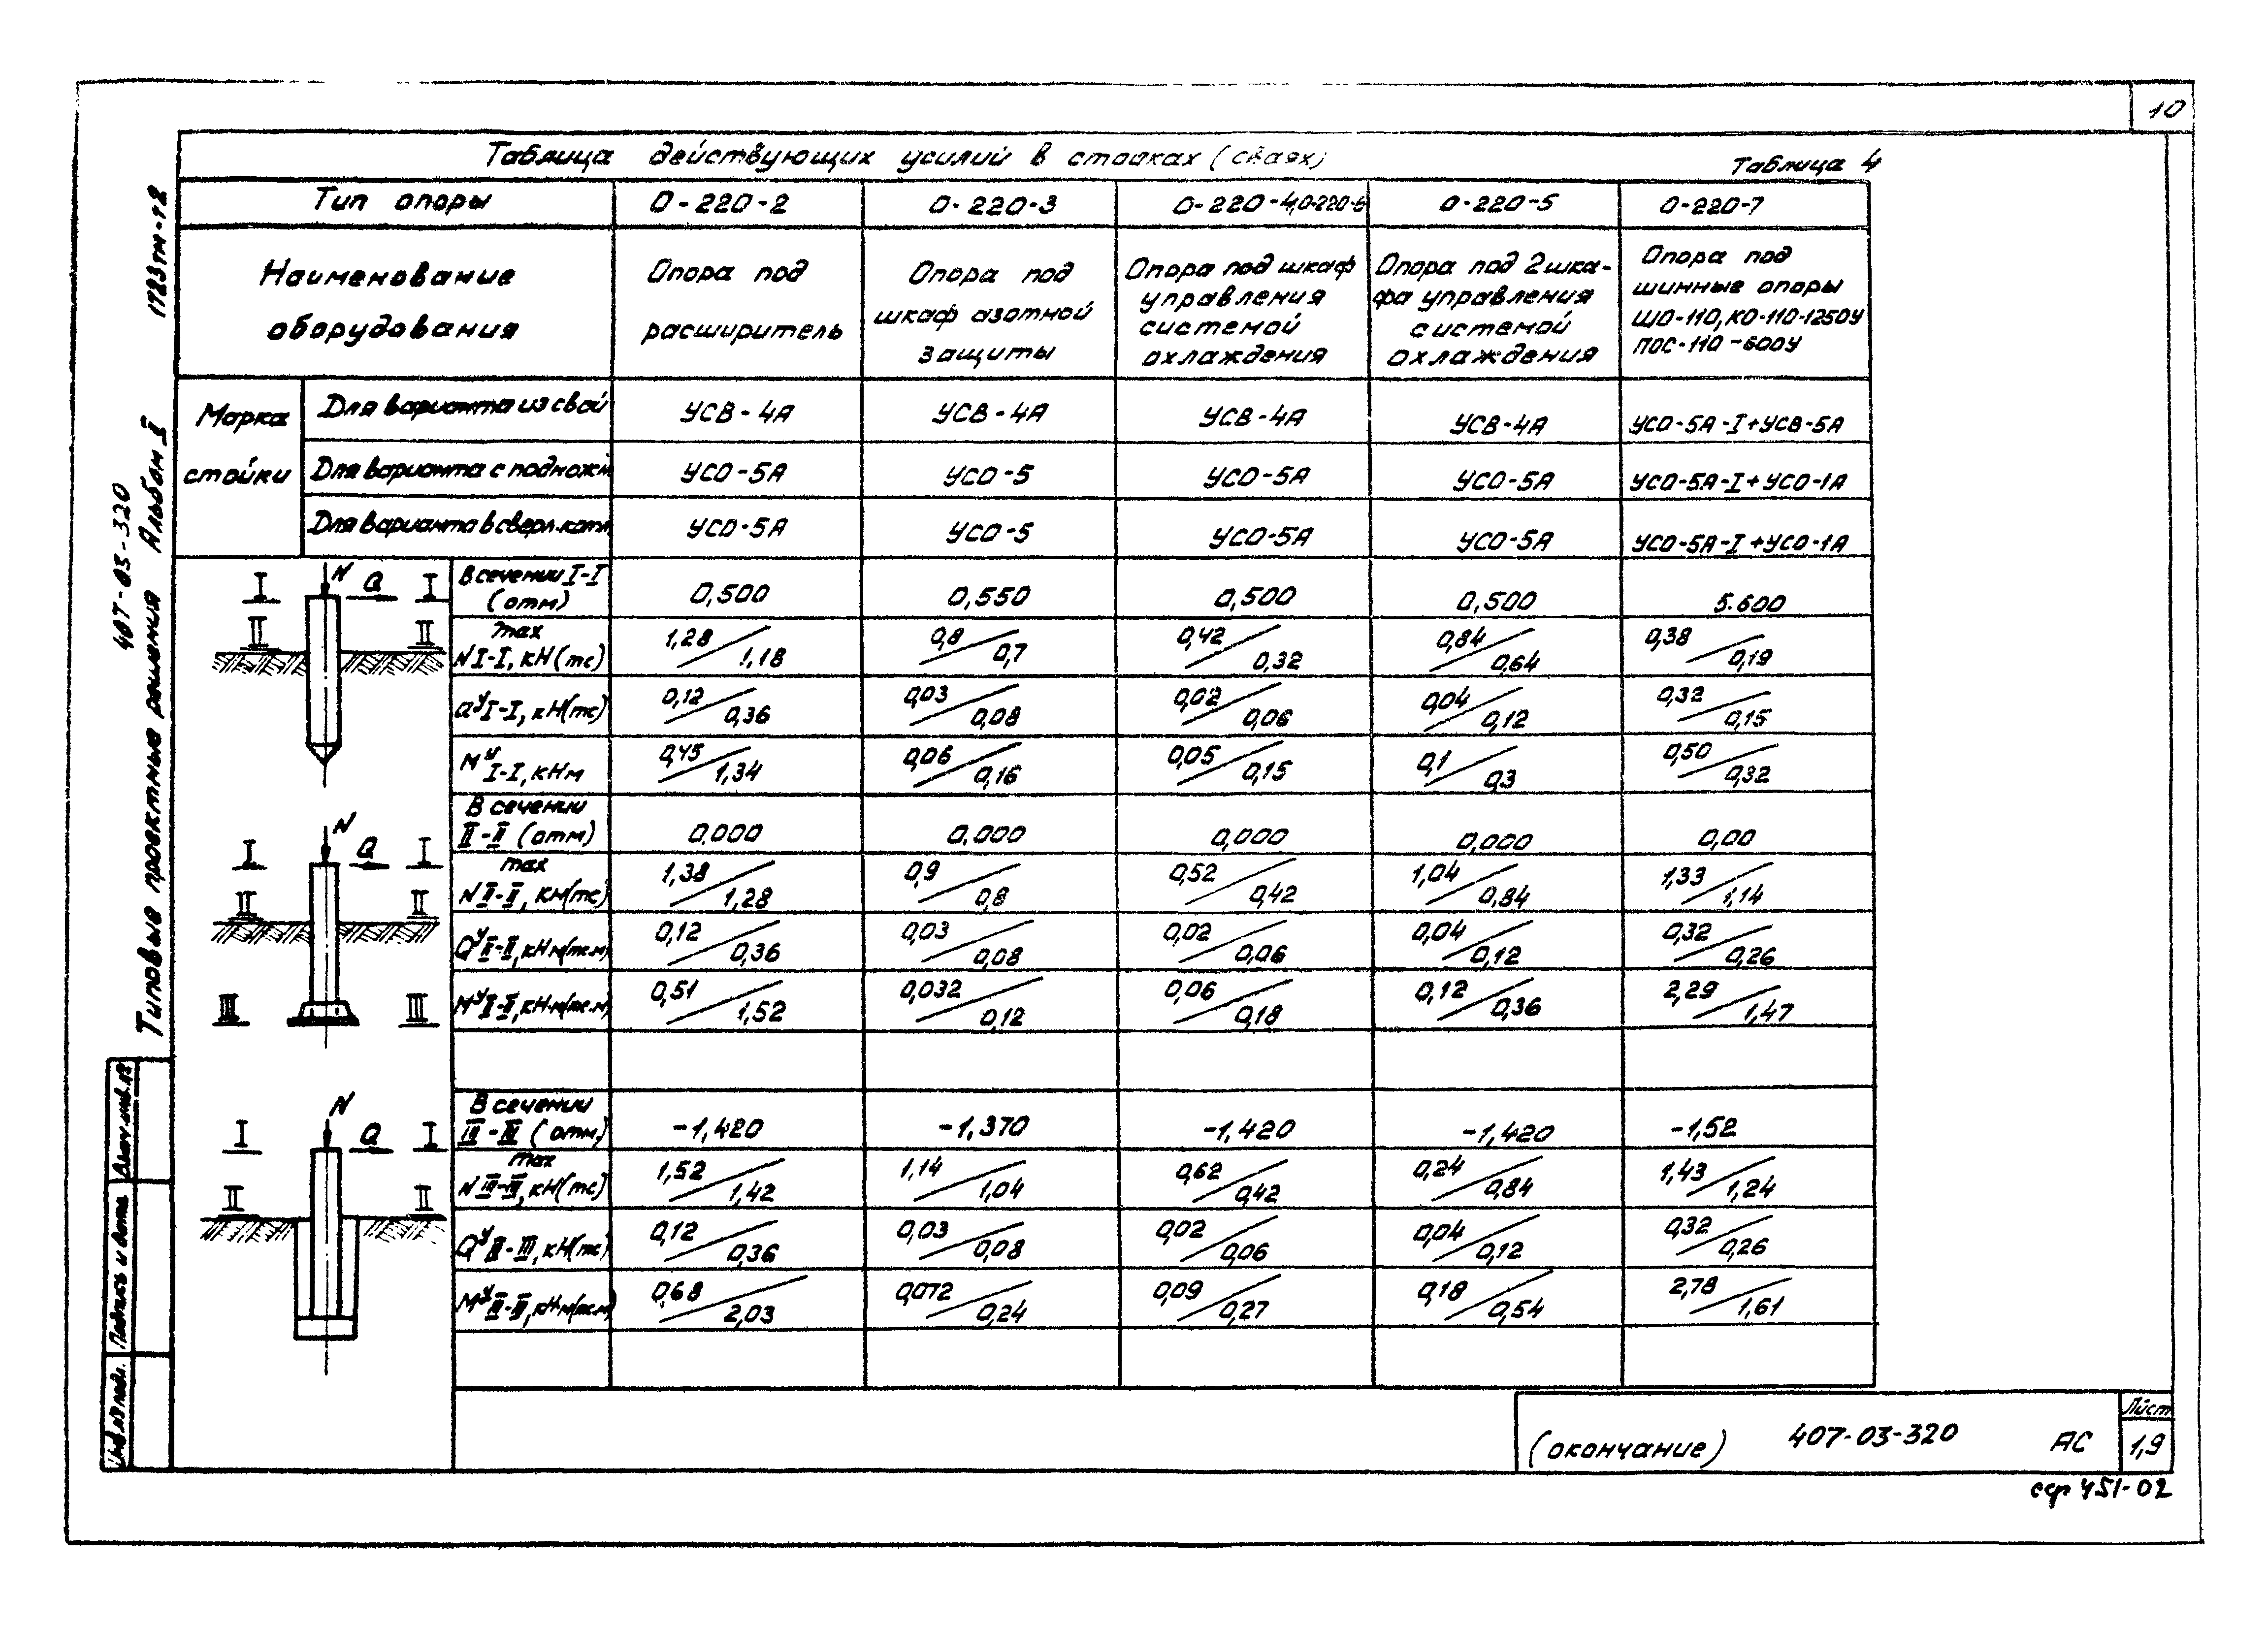 10
Таблица действующих усилий в стойках (сваях)
Таблица 4
Тип опоры О-220-2 О-220-3 О-220-4,О-220-6 О-220-5 О-220-7
Наименование оборудования
Опора под расширитель
Опора под шкаф азотной защиты
Опора под шкаф управления системой охлаждения
Опора под 2 шка-фа управления системой охлаждения
Опора под шинные опоры ШО-110, КО-110-1250У ПОС-110-600У
Марка стойки
Для варианта из свай УСВ-4А УСВ-4А УСВ-4А УСВ-4А УСО-5А-I+УСВ-5А
Для варианта с подножн УСО-5А УСО-5 УСО-5А УСО-5А УСО-5А-I+УСО-1А
Для варианта в сверл.котл УСО-5А УСО-5 УСО-5А УСО-5А УСО-5А-I+УСО-1А
В сечении I-I (отм) 0,500 0,550 0,500 0,500 5.600
max N I-I, кН(тс) 1,28/1,18 0,8/0,7 0,42/0,32 0,84/0,64 0,38/0,19
Qу I-I, кН(тс) 0,12/0,36 0,03/0,08 0,02/0,06 0,04/0,12 0,32/0,15
Mу I-I, кНм 0,45/1,34 0,06/0,16 0,05/0,15 0,1/0,3 0,50/0,32
В сечении II-II (отм) 0,000 0,000 0,000 0,000 0,00
max N II-II, кН(тс) 1,38/1,28 0,9/0,8 0,52/0,42 1,04/0,84 1,33/1,14
Qу II-II, кНм(тс.м) 0,12/0,36 0,03/0,08 0,02/0,06 0,04/0,12 0,32/0,26
Mу II-II, кН.м(тс.м) 0,51/1,52 0,032/0,12 0,06/0,18 0,12/0,36 2,29/1,47
В сечении III-III (отм.) -1,420 -1,370 -1,420 -1,420 -1,52
max N III-III, кН(тс) 1,52/1,42 1,14/1,04 0,62/0,42 0,24/0,84 1,43/1,24
Qу III-III, кН(тс) 0,12/0,36 0,03/0,08 0,02/0,06 0,04/0,12 0,32/0,26
Mу III-III, кН.м(тс.м) 0,68/2,03 0,072/0,24 0,09/0,27 0,18/0,54 2,78/1,61
N Q I I II II
N Q I I II II III III
N Q I I II II
407-03-320
Типовые проектные решения Альбом II 1723тм-т2
Инв.№ подл. Подпись и дата
(окончание) 407-03-320 АС
Лист
1,9
сф 451-02